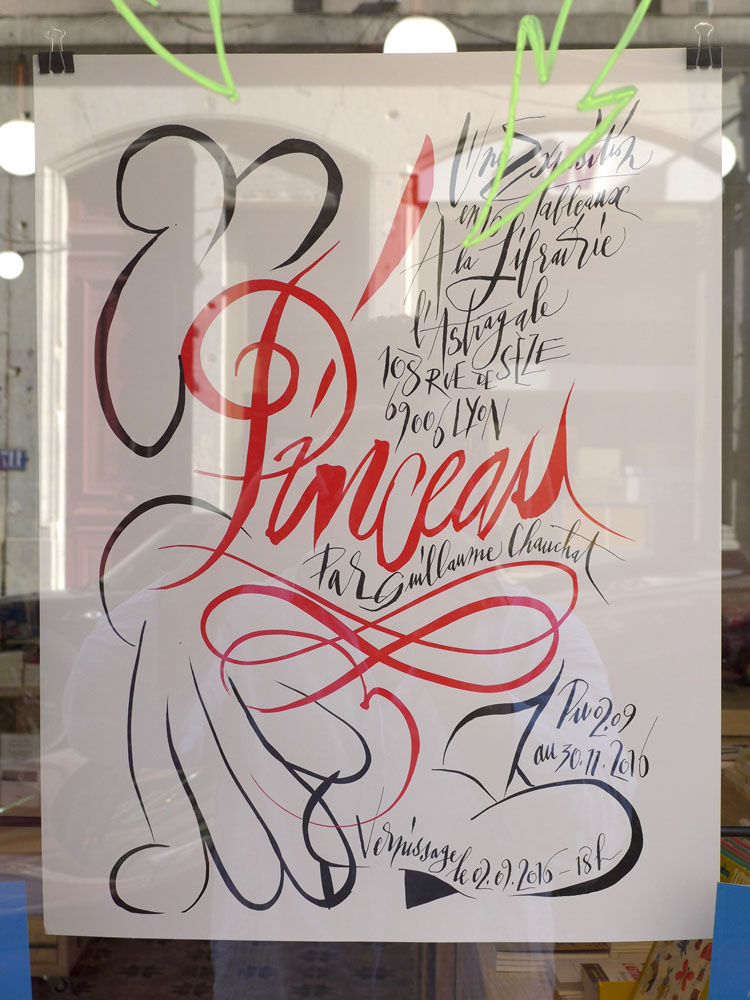 Une Exposition
en 16 Tableaux
A la Librairie
l'Astragale
108 RUE DE SÈZE
69006 LYON
Pinceau
Par Guillaume Chauchat
Du 02.09
au 30.11.2016
Vernissage
le 02.09.2016 - 18h